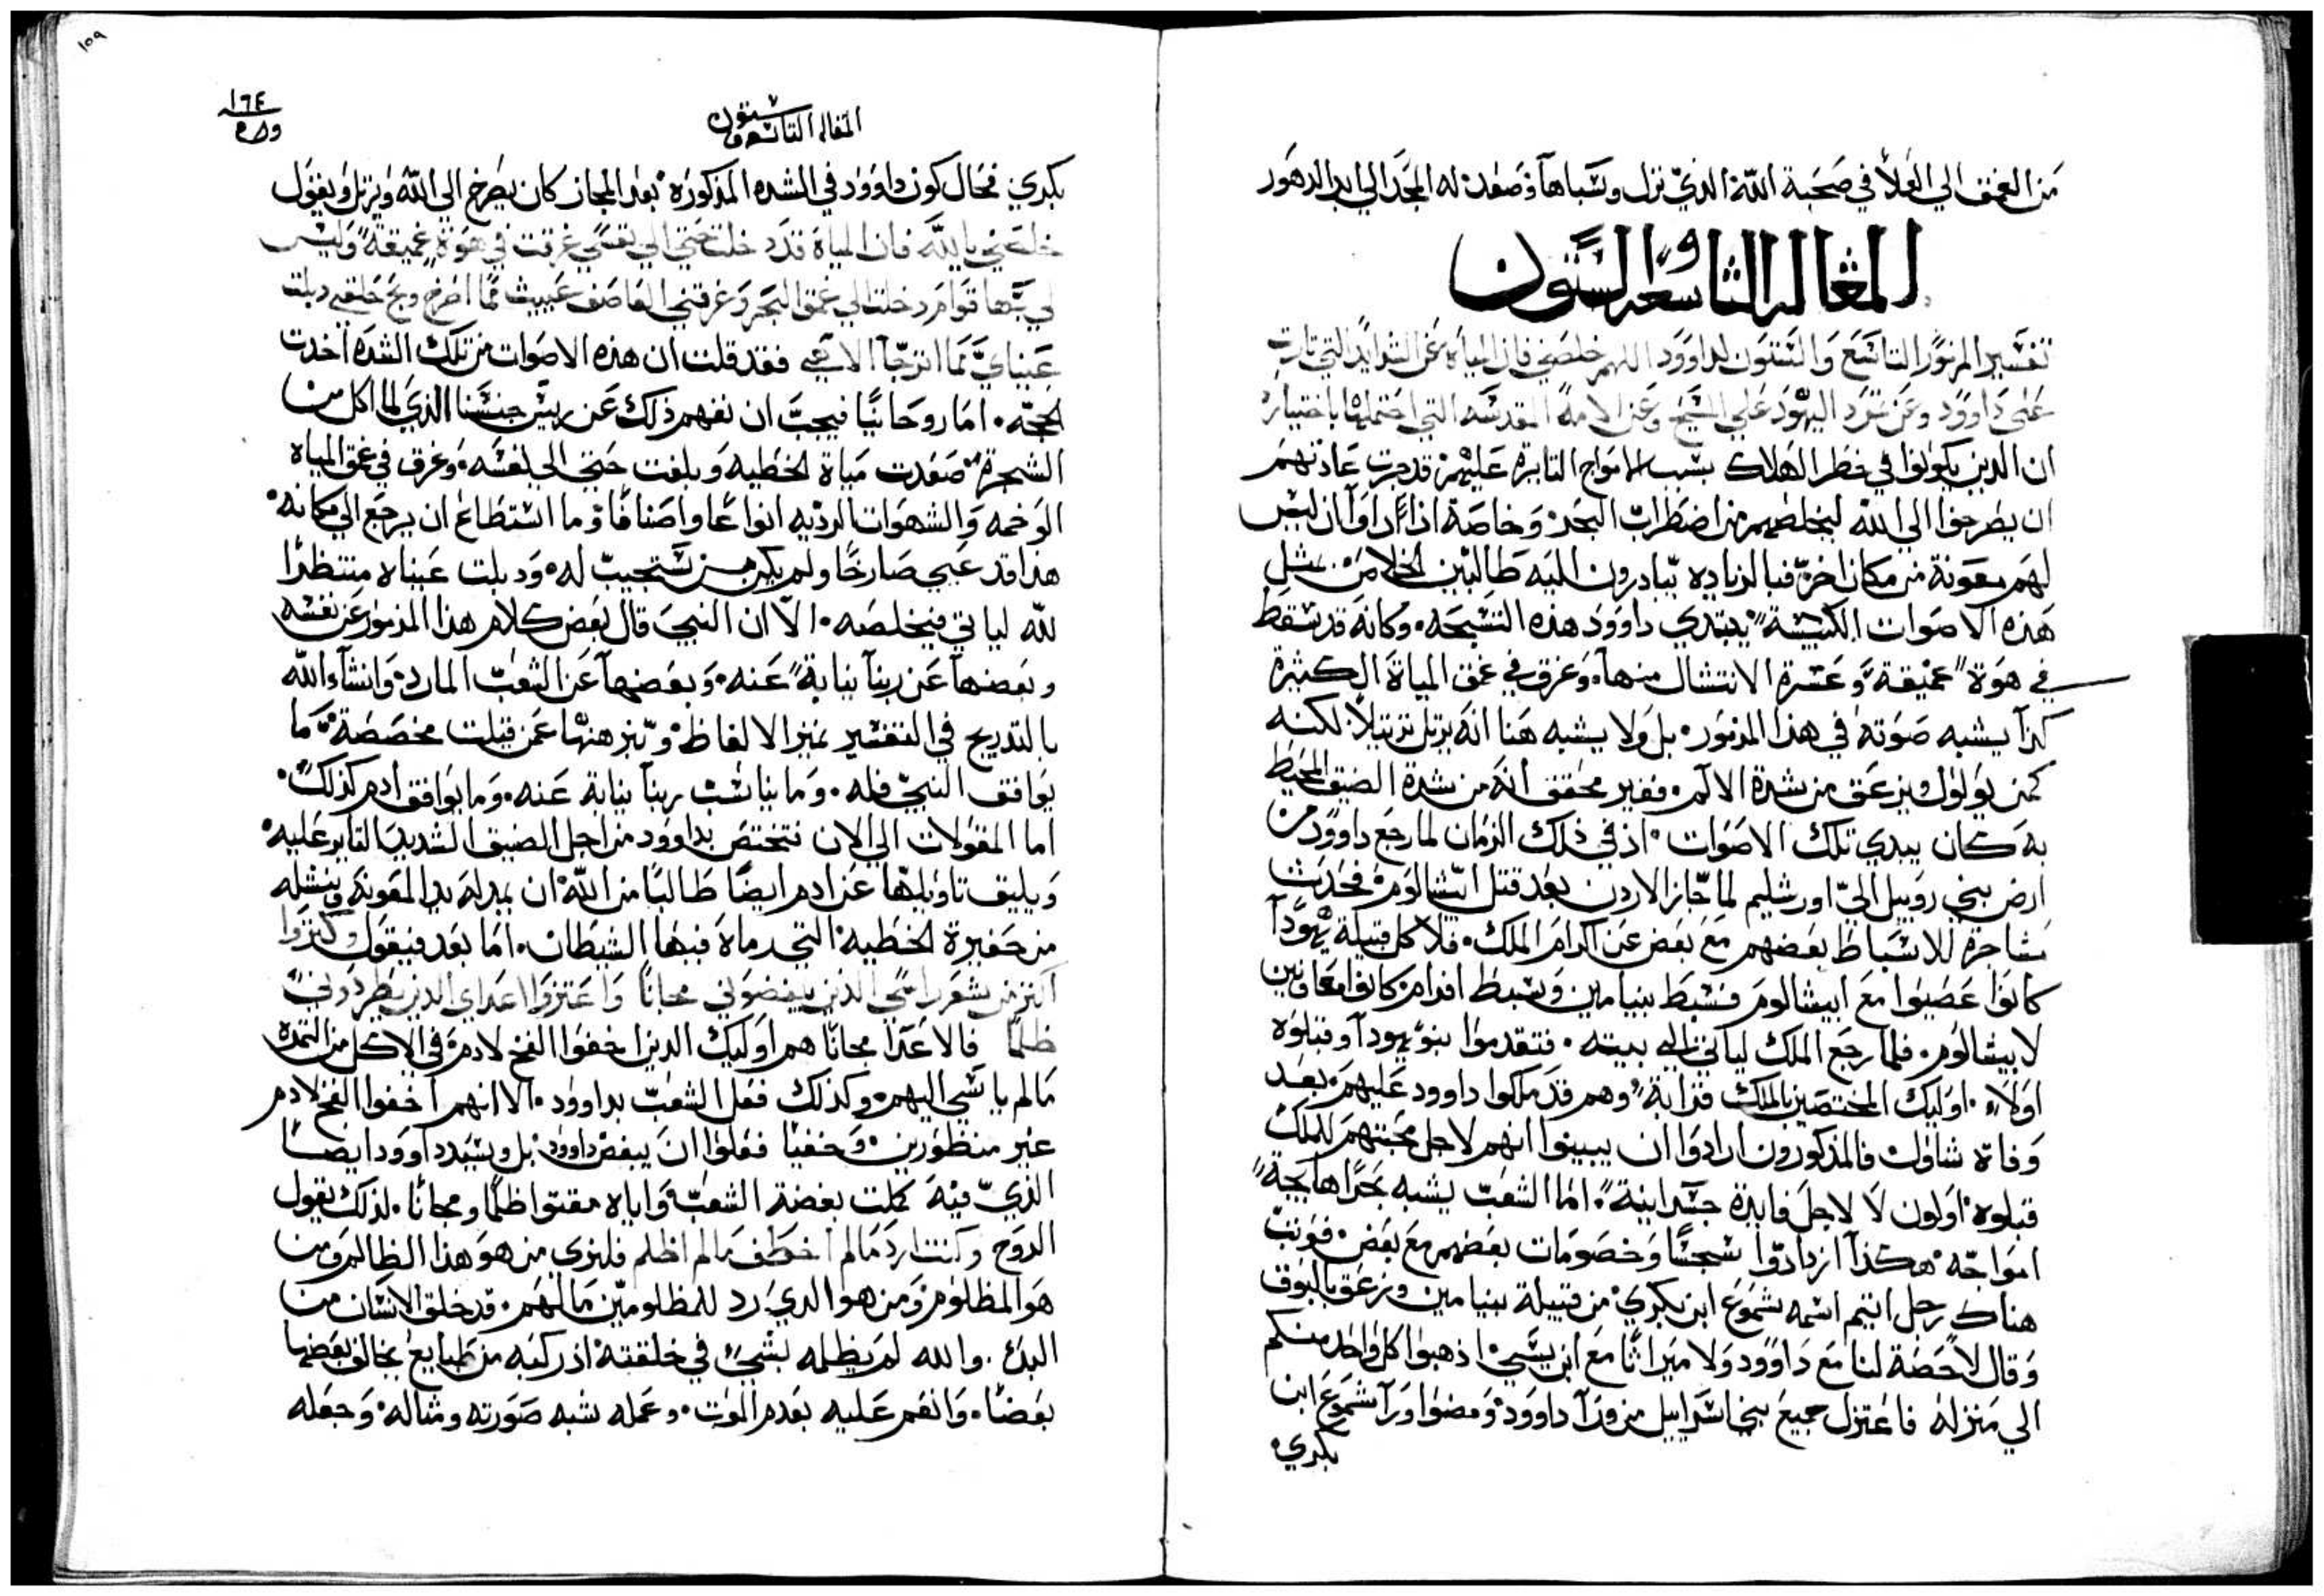 من العمق الي العلا في صحبة الله الذي نزل وسباها وصعد له المجد الي ابد الدهور
المقاله التاسعه والستون
تفسير المزمور التاسع والستون لداوود اللهم خلصني فان المياه عن الشدايد التي ثارت
علي داوود وعن تمرد اليهود علي المسيح وعن الامه المقدسه التي احتملها باختياره
ان الذين يكونوا في خطر الهلاك بسبب الامواج الثايره عليهم قد جرت عادتهم
ان يصرخوا الي الله ليخلصهم من اضطراب البحر وخاصة اذا راوا ان ليس
لهم معونة من مكان اخر فبالزياده يبادرون اليه طالبين الخلاص مثل
هذه الاصوات الكييبة يبتدي داوود هذه التسبحه وكانه قد سقط
في هوة عميقة وعسرة الانتشال منها وغرق في عمق المياة الكثيرة
كذا يشبه صوته في هذا المزمور بل ولا يشبه هنا انه يرتل ترتيلا لكنه
كمن يولول ويزعق من شدة الالم فغير محقق انه من شدة الضيق المحيط
به كان يبدي تلك الاصوات اذ في ذلك الزمان لما رجع داوود من
ارض بني روبيل الي اورشليم لما جاز الاردن بعد قتل ابيشالوم فحدثت
مشاجرة للاسباط بعضهم مع بعض عن اكرام الملك فلا كل قبيلة يهودا
كانوا عصيوا مع ابيشالوم فسبط بنيامين وسبط افرام كانوا معاونين
لابيشالوم فلما رجع الملك لياتي الي بيته فتقدموا بنو يهودا وقبلوه
اولا اوليك المختصين بالملك قرابة وهم قد ملكوا داوود عليهم بعد
وفاة شاول فالمذكورون ارادوا ان يبينوا انهم لاجل محبتهم للملك
قبلوه اولون لا لاجل فايدة جسدانية اما الشعب يشبه بحرا هايجة
امواجه هكذا ازدادوا سجسا وخصومات بعضهم مع بعض فوثب
هناك رجل اثيم اسمه شموع ابن بكري من قبيلة بنيامين وزعق بالبوق
وقال لا حصة لنا مع داوود ولا ميراثا مع ابن يسي اذهبوا كل واحد منكم
الي منزله فاعتزل جميع بني اسراييل من ورا داوود ومضوا ورا شموع ابن
بكري
١٥٩
١٦٤
المقاله التاسعه وستون
بكري فحال كون داوود في الشده المذكوره بعد المجاز كان يصرخ الي الله ويرتل ويقول
خلصني يا الله فان المياة قد دخلت حتي الي نفسي غرقت في هوة عميقة وليس
لي بها قوام دخلت الي عمق البحر وغرقتني العاصف عييت مما اصرخ وبح حلقي دبلت
عيناي مما اترجا الاهي فقد قلت ان هذه الاصوات من تلك الشده اخدت
الحجه اما روحانيا فيجب ان نفهم ذلك عن ريس جنسنا الذي لما اكل من
الشجرة صعدت مياة الخطيه وبلغت حتي الي نفسه وغرق في عمق المياه
الوخمه والشهوات الرديه انواعا واصنافا وما استطاع ان يرجع الي مكانه
هذا قد عيي صارخا ولم يكن من يستجيب له ودبلت عيناه منتظرا
لله لياتي فيخلصه الا ان النبي قال بعض كلام هذا المزمور عن نفسه
وبعضها عن ربنا نيابة عنه وبعضها عن الشعب المارد وانشاء الله
بالتدريج في التفسير نميز الالفاظ عمن قيلت مخصصة ما
يوافق النبي فله وما يناسب ربنا نيابة عنه وما يوافق ادم كذلك
اما المقولات الي الان تختص بداوود من اجل الضيق الشديد الثاير عليه
ويليق تاويلها عن ادم ايضا طالبا من الله ان يمد له يد المعونة وينشله
من حفيرة الخطيه التي رماه فيها الشيطان اما بعد فيقول وكثروا
اكثر من شعر راسي الذين يبغضوني مجانا واعتزوا اعداي الذين يطردوني
ظلما فالاعدا مجانا هم اوليك الذين اخفوا الفخ لادم في الاكل من الثمرة
مالم ياسي اليهم وكذلك فعل الشعب بداوود الا انهم اخفوا الفخ لادم
غير منظورين وخفيا فعلوا ان يبغض داوود بل وسيد داوود ايضا
الذي فيه كملت بغضة الشعب واياه مقتوا ظلما ومجانا لذلك يقول
الروح وكنت ارد مالم اخطف مالم اظلم فلنري من هو هذا الظالم ومن
هو المظلوم ومن هو الذي رد للمظلومين مالهم قد خلق الانسان من
البدء والله لم يظلمه بشي في خلقته اذ ركبه من طبايع يخالف بعضها
بعضا وانعم عليه بعدم الموت وعمله شبه صورته ومثاله وجعله